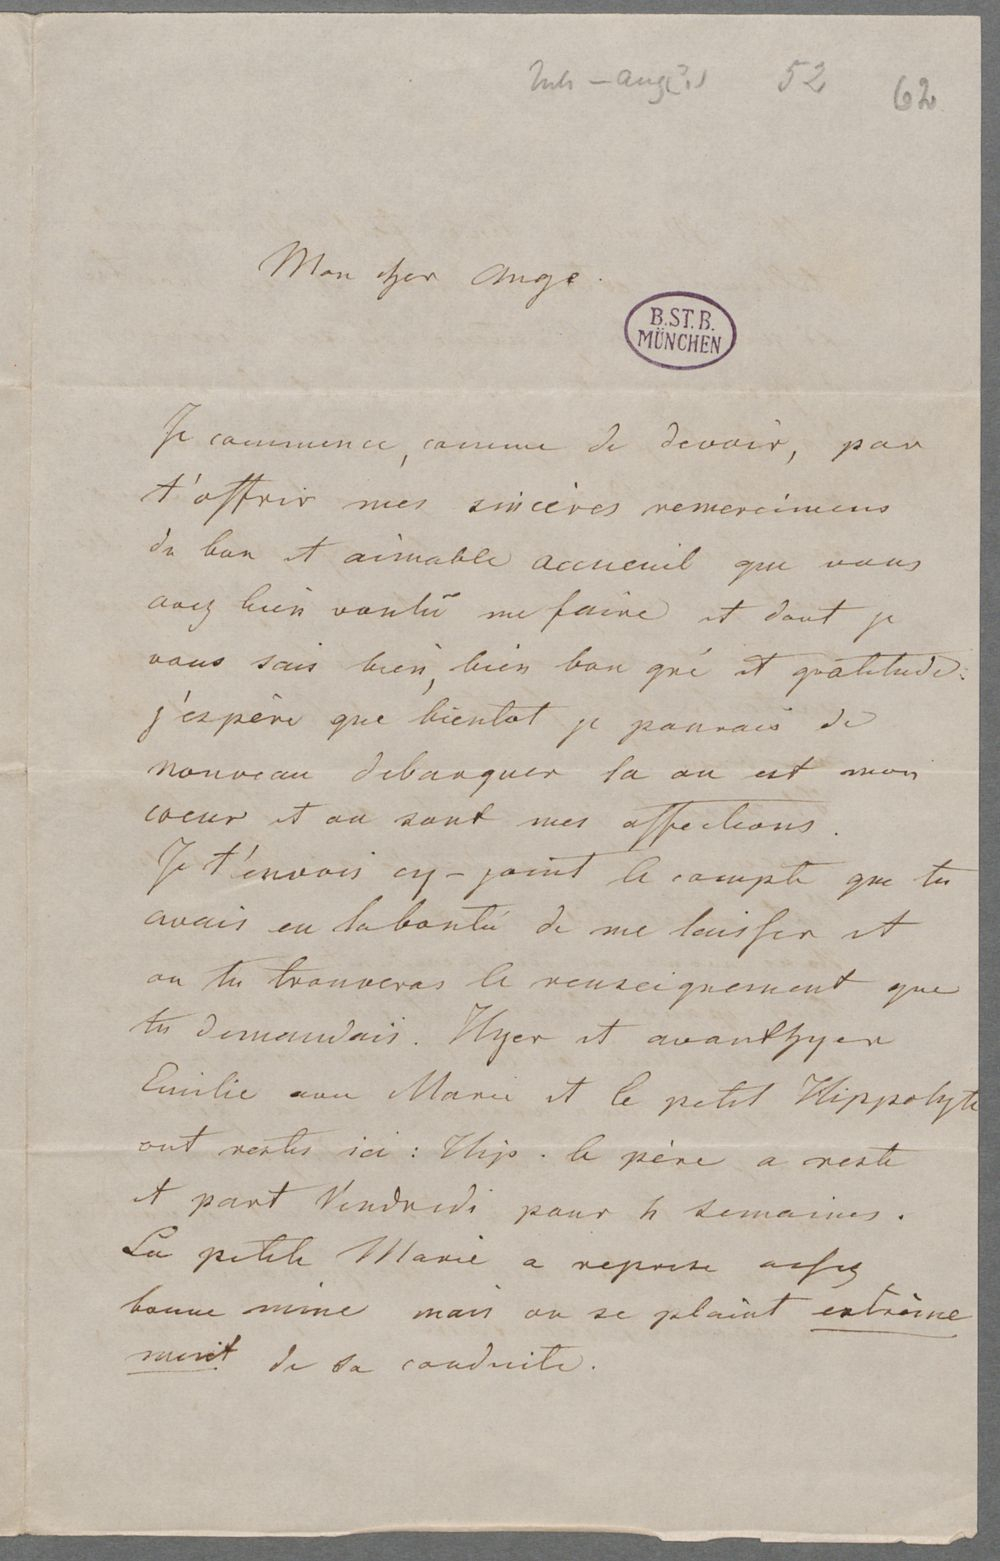 52
62
Mon cher Ange.
B.ST.B.
MÜNCHEN
Je commence, comme de devoir, par
t'offrir mes sincères remercimens
du bon et aimable accueuil que vous
avez bien voulu me faire et dont je
vous sais bien, bien bon gré et gratitude:
j'espère que bientot je pourrais de
nouveau debarquer la ou est mon
coeur et ou sont mes affections.
Je t'envois cy-joint le compte que tu
avais eu la bonté de me laisser et
ou tu trouveras le renseignement que
tu demandais. Hyer et avanthyer
Emilie avec Marie et le petit Hippolyte
ont restés ici: Hip. le père a resté
et part Vendredi pour 4 semaines.
La petite Marie a reprise assez
bonne mine mais on se plaint extrême
ment de sa conduite.